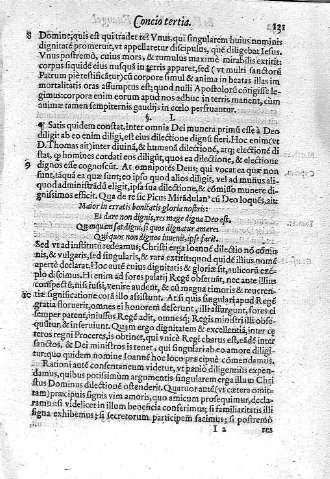 Concio tertia. 131
8 Domine; quis est qui tradet te? Vnus, qui singularem huius nominis
dignitatē promeruit, vt appellaretur discipulus, quē diligebat Iesus,
Vnus postremò, cuius mors, & tumulus maximè mirabilis extitit:
corpus siquidē eius nusquā in terris apparet, sed (vt multi sanctorū
Patrum piè testificātur) cū corpore simul & anima in beatas illas im
mortalitatis oras assumptus est; quod nulli Apostolorū cōtigisse le-
gimus: corpora enim eorum apud nos adhuc in terris manent, cùm
animæ tamen sempiternis gaudijs in cœlo perfruantur.
§. I.
¶ Satis quidem constat, inter omnia Dei munera primū esse à Deo
diligi: ab eo enim diligi, est eius dilectione dignū fieri. Hoc enim (vt
D. Thomas ait) inter diuinā, & humanā dilectionē,
stat, q̄ homines cordati eos diligūt, quos ea dilectione, & electione
9 dignos esse cognoscūt. At omnipotēs Deus, qui vocat ea quæ non
sunt, tāquā ea quæ sunt; eo ipso quòd alios diligit, vel ad munus ali-
quod administrādū eligit, ipsa sua dilectione, & cōmisso munere di-
gnissimos efficit. Qua de re sic Picus Mirādulan⁹ cū Deo loquēs, ait:
Maior in erratis bonitatis gloria nostris:
Et dare non dignis, res mage digna Deo est.
Quamquam sat digni, si quos dignatur amare:
Qui quos non dignos inuenit, ipse facit.
Sed vt ad institutū redeamus, Christi erga Ioannē dilectio nō cōmu
nis, & vulgaris, sed singularis, & rara extitit: quod quidē illius nomē
apertè declarat. Hoc autē cuius dignitatis & gloriæ sit, aulicorū exē-
plo discimus. Hi enim ad fores palatij Regē obseruāt, nec ante illius
conspectū, nisi iussi, venire audent, & cū magna timoris & reueren-
10 tiæ significatione corā illo assistunt. At si quis singulari apud Regē
gratia floruerit, omnes ei honorem deferunt, illi assurgunt, fores ei
semper patent, iniussus Regē adit,
Quam ergo dignitatem & excellentiā, inter cæ
teros regni Proceres, is obtinet, qui vnicè Regi charus est, eādē inter
sanctos, & Dei ministros is tenet, qui singulari ab eo amore diligi-
tur: quo quidem nomine Ioannē hoc loco præcipuè cōmendamus.
Rationi autē consentaneum videtur, vt paulò diligentius expen-
damus, quibus potissimùm argumentis singularem erga illum Chri
stus Dominus dilectionē ostenderit. Quatuor autē (vt cætera omit
tam) præcipuis signis vim amoris, quo amicum prosequimur, decla-
ramus: si videlicet in illum beneficia conferimus; si familiaritatis illi
signa exhibemus; si secretorum participem facimus; si postremò
I 2 res